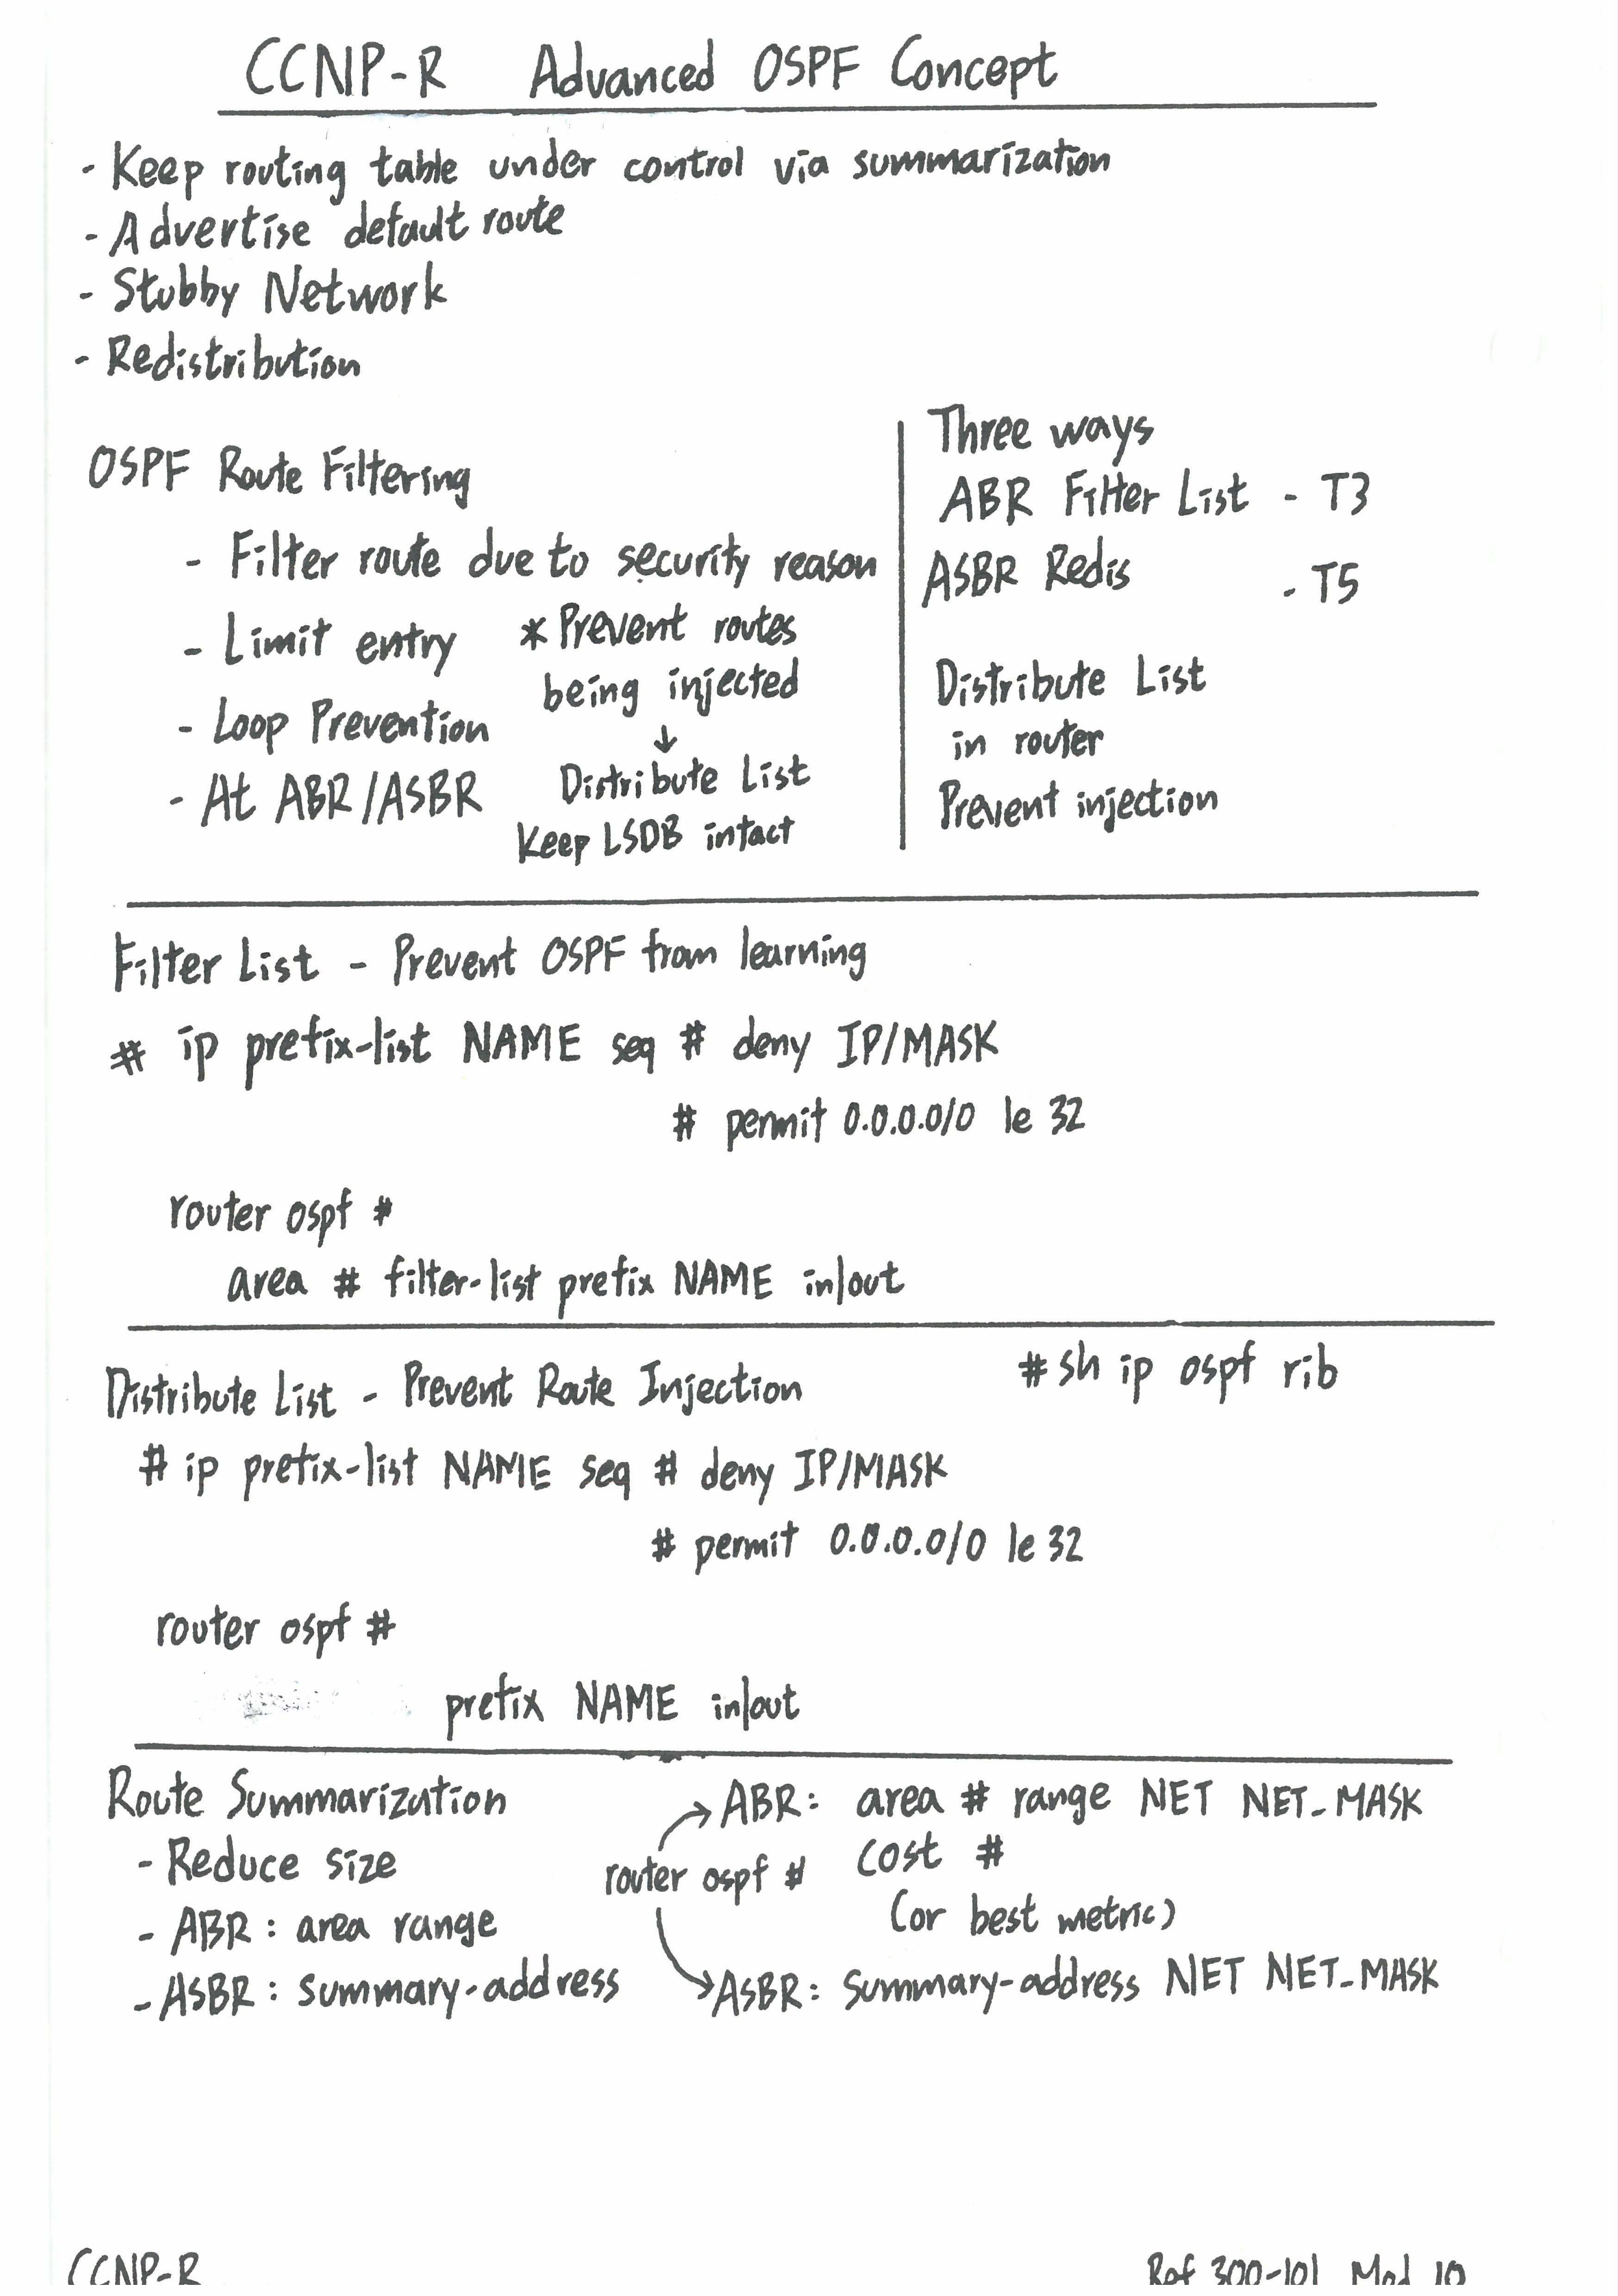 CCNP-R Advanced OSPF Concept
- Keep routing table under control via summarization
- Advertise default route
- Stubby Network
- Redistribution
OSPF Route Filtering
- Filter route due to security reason
- Limit entry
- Loop Prevention
- At ABR/ASBR
* Prevent routes
being injected
↓
Distribute List
Keep LSDB intact
Three ways
ABR Filter List - T3
ASBR Redis - T5
Distribute List
in router
Prevent injection
Filter List - Prevent OSPF from learning
# ip prefix-list NAME seq # deny IP/MASK
# permit 0.0.0.0/0 le 32
router ospf #
area # filter-list prefix NAME in|out
Distribute List - Prevent Route Injection
# sh ip ospf rib
# ip prefix-list NAME seq # deny IP/MASK
# permit 0.0.0.0/0 le 32
router ospf #
prefix NAME in|out
Route Summarization
- Reduce size
- ABR : area range
- ASBR : summary-address
router ospf #
ABR: area # range NET NET_MASK
cost #
(or best metric)
ASBR: Summary-address NET NET_MASK
CCNP-R
Ref 300-101 Mod 10